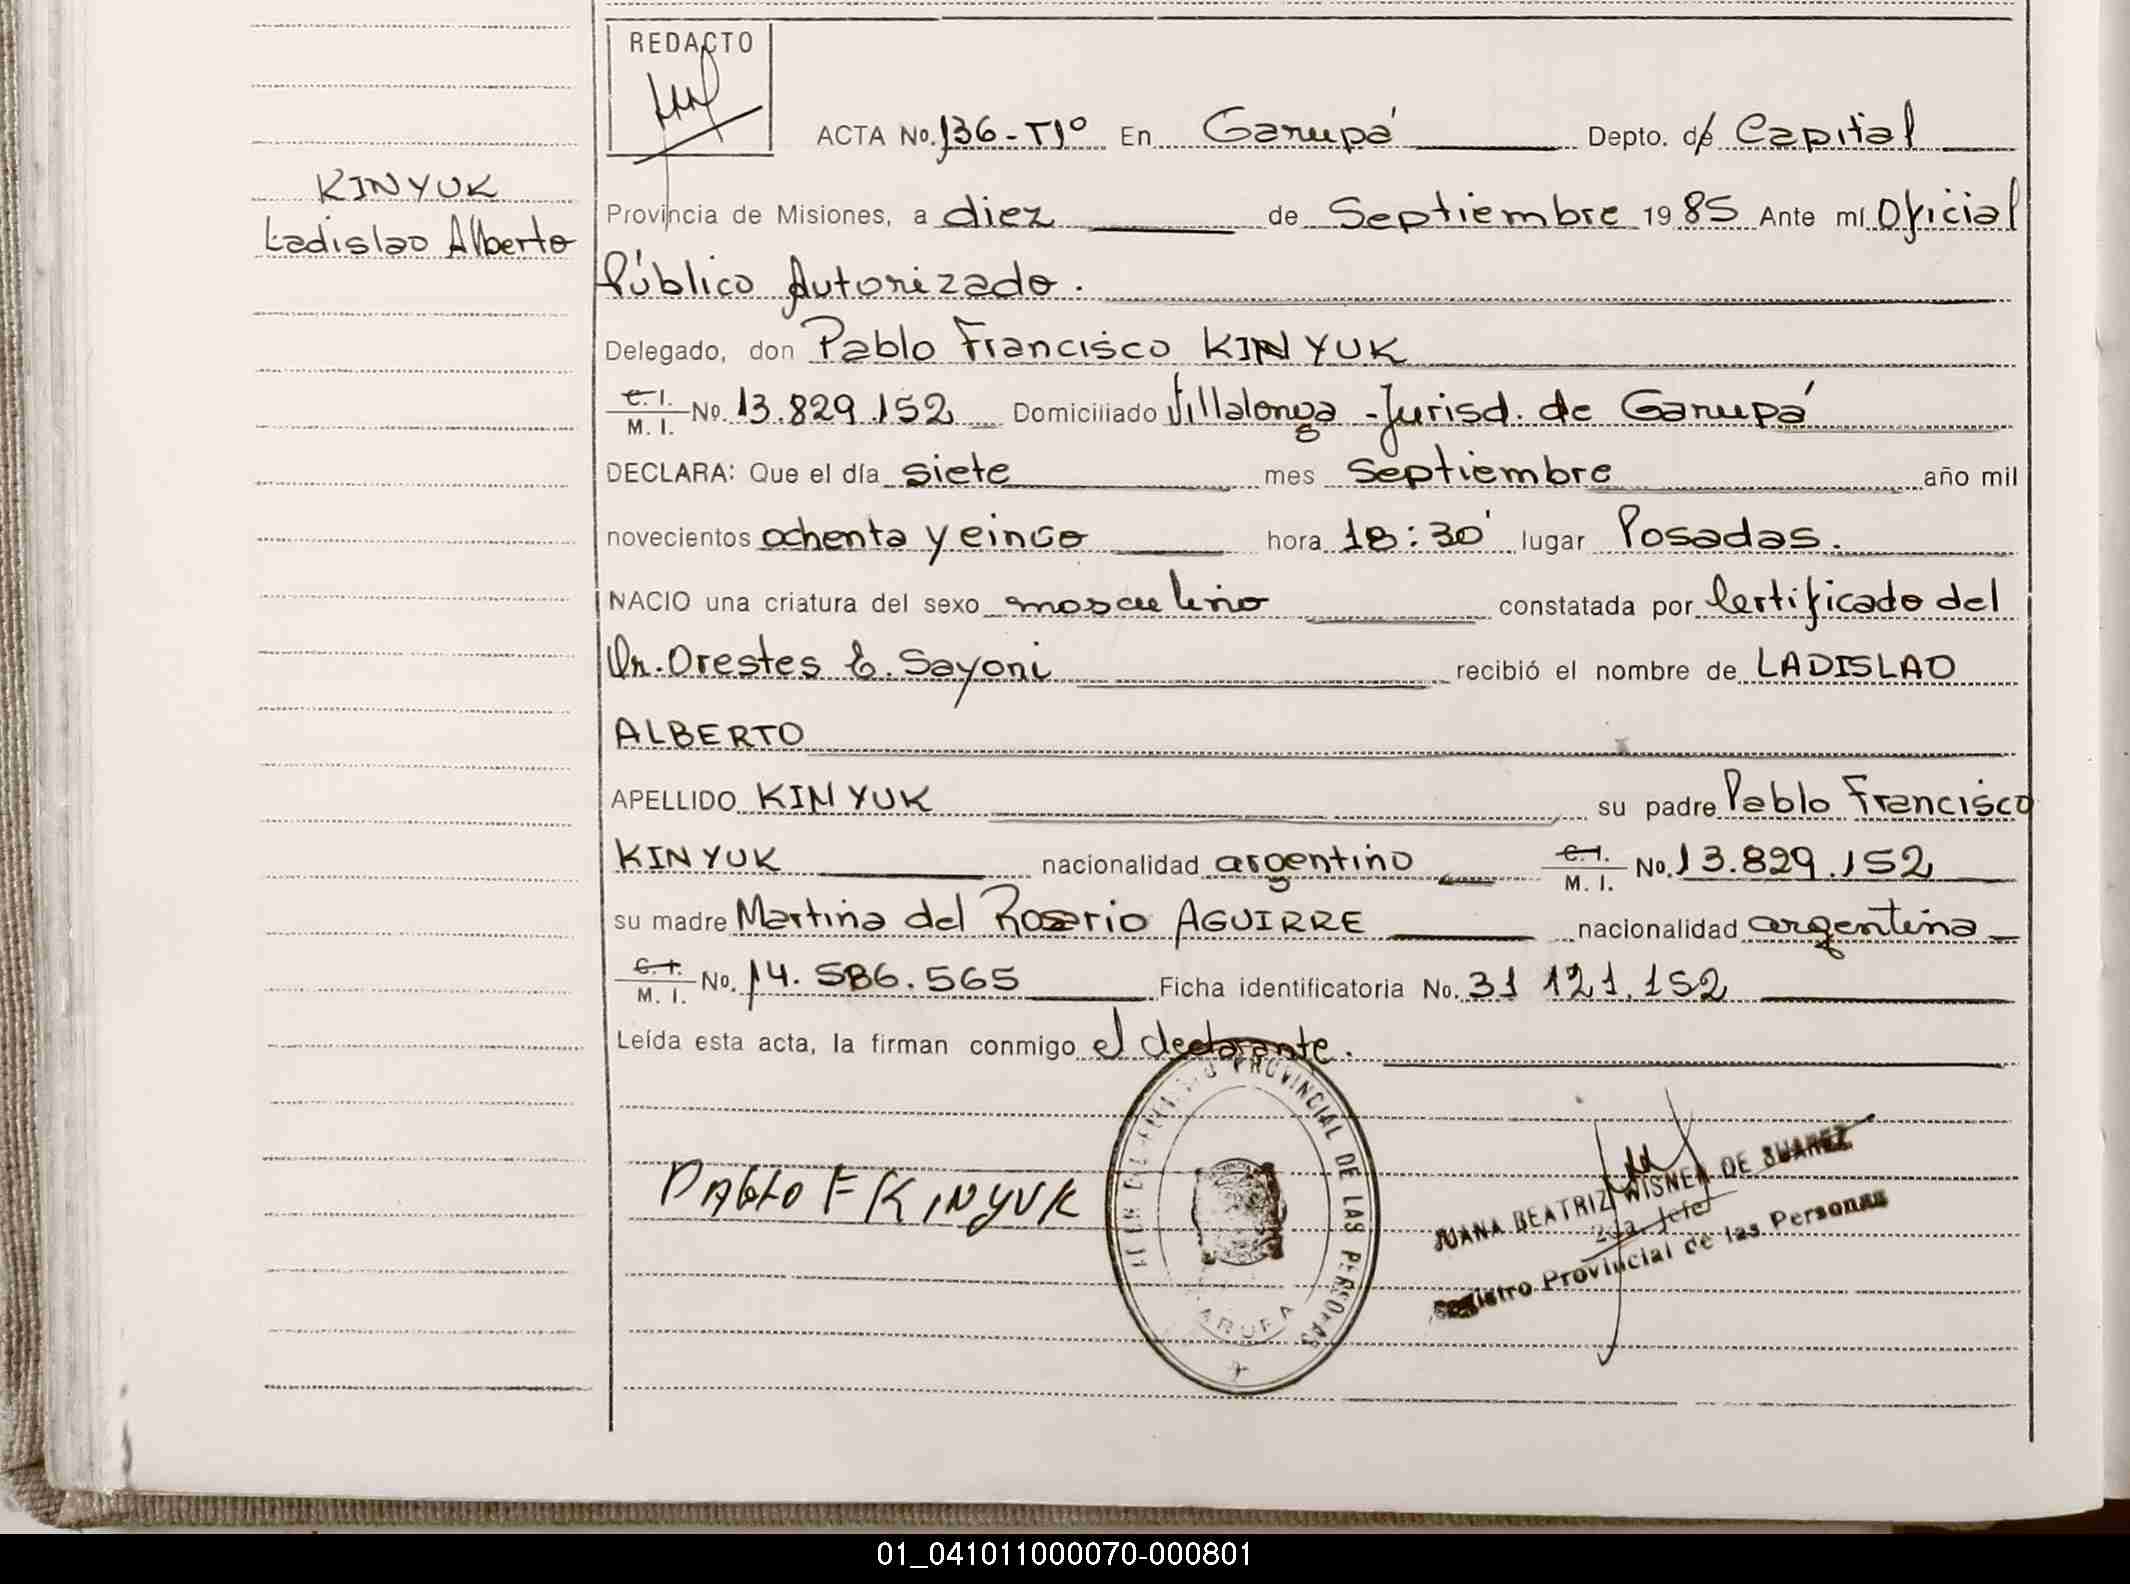 REDACTO
ACTA No. 136-Tº1º En Garupá Depto. de Capital
KINYUK
Ladislao Alberto
Provincia de Misiones, a diez de Septiembre 1985 Ante mí Oficial
Público Autorizado.
Delegado, don Pablo Francisco KINYUK
C. I.
M. I. No. 13.829.152 Domiciliado Villalonga - Jurisd. de Garupá
DECLARA: Que el día siete mes Septiembre año mil
novecientos ochenta y cinco hora 18:30' lugar Posadas.
NACIO una criatura del sexo masculino constatada por Certificado del
Dr. Orestes E. Sayoni recibió el nombre de LADISLAO
ALBERTO
APELLIDO KINYUK su padre Pablo Francisco
KINYUK nacionalidad argentino C. I. M. I. No. 13.829.152
su madre Martina del Rosario AGUIRRE nacionalidad argentina
C. I.
M. I. No. 14.586.565 Ficha identificatoria No. 31 121.152
Leída esta acta, la firman conmigo el declarante.
PABLO F KINYUK
PROVINCIAL DE LAS PERSONAS
GARUPA
JUANA BEATRIZ WISNER DE SUAREZ
2da. Jefe
Registro Provincial de las Personas
01_041011000070-000801